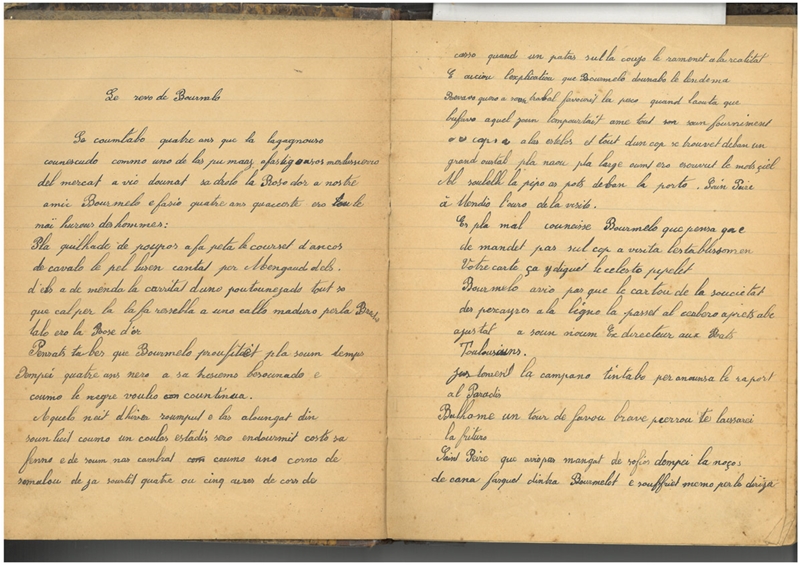 Le revo de Bourmelo
Se coumtabo quatre ans que la lagagnouso
counescudo commo uno de las pu maaz
del mercat a vio dounat sa dreto la Boso dor a nostre
amic Bourmelo e fasio quatre ans quaceste ero tou le
maï hurous des hommes:
Pla quilhado de pougros a fa peta le courset d'ancos
de cavalo le pel lusen cantat per Mengaud dels.
d'els a de menda la carritat d'uno poutounejado tout so
que cal per la fa resembla a uno callo maduro per la
lalo ero la Bose d'or
Pensats ta bes que Bourmelo proufitèt pla soum temps
Dempèi quatre ans nero a sa hesiemo bosounado e
coumo le negre voulio countinia.
Aquelo neit d'hiver roumput e las aloungat din
soun lieit coumo un coulas estadis sero endourmit costo sa
fenno e de soum nas cambrat coumo uno corno de
semalou de ja sourtit quatre ou cinq aires de cors de
casso quand un patas sul la couxo le ramenet a la realitat
E aicioù l'explicatiou que Bourmelo dounabo le lendema
Rebabo quero a soun trabal favouris la peco quand laouta que
bufabo aquel joun lampourtaït ame tout soun fourniment
a las estelos et tout d'un cop se troubet deban un
grand oustal pla naou pla large eums ero escriut le mots ciel
Al soulelh la pipo as pots deban la porto. Sain Peire
à tendio l'ouro de la visito.
Es pla mal couneisse Bourmelo que pensa que
de mandet pas sul cop a visita l'establissomen
Votre carte ça ydiguel le celesto pipelet
Bourmelo avio pas que le cartou de la souciétat
des pescayres a la ligno la passet al cerbero après abe
ajustat a soun noum Ex directeur aux Abats
Toulousiuns.
Justomen la campano tintabo per anounsa le raport
al Paradis
Bulhame un tour de favou brave peirrou te laissarei
la futuro
Saint Peire que avio pas mangat de sofio dempei la noços
de cana farguet dintra Bourmelot e souffriet memo per lo diriza